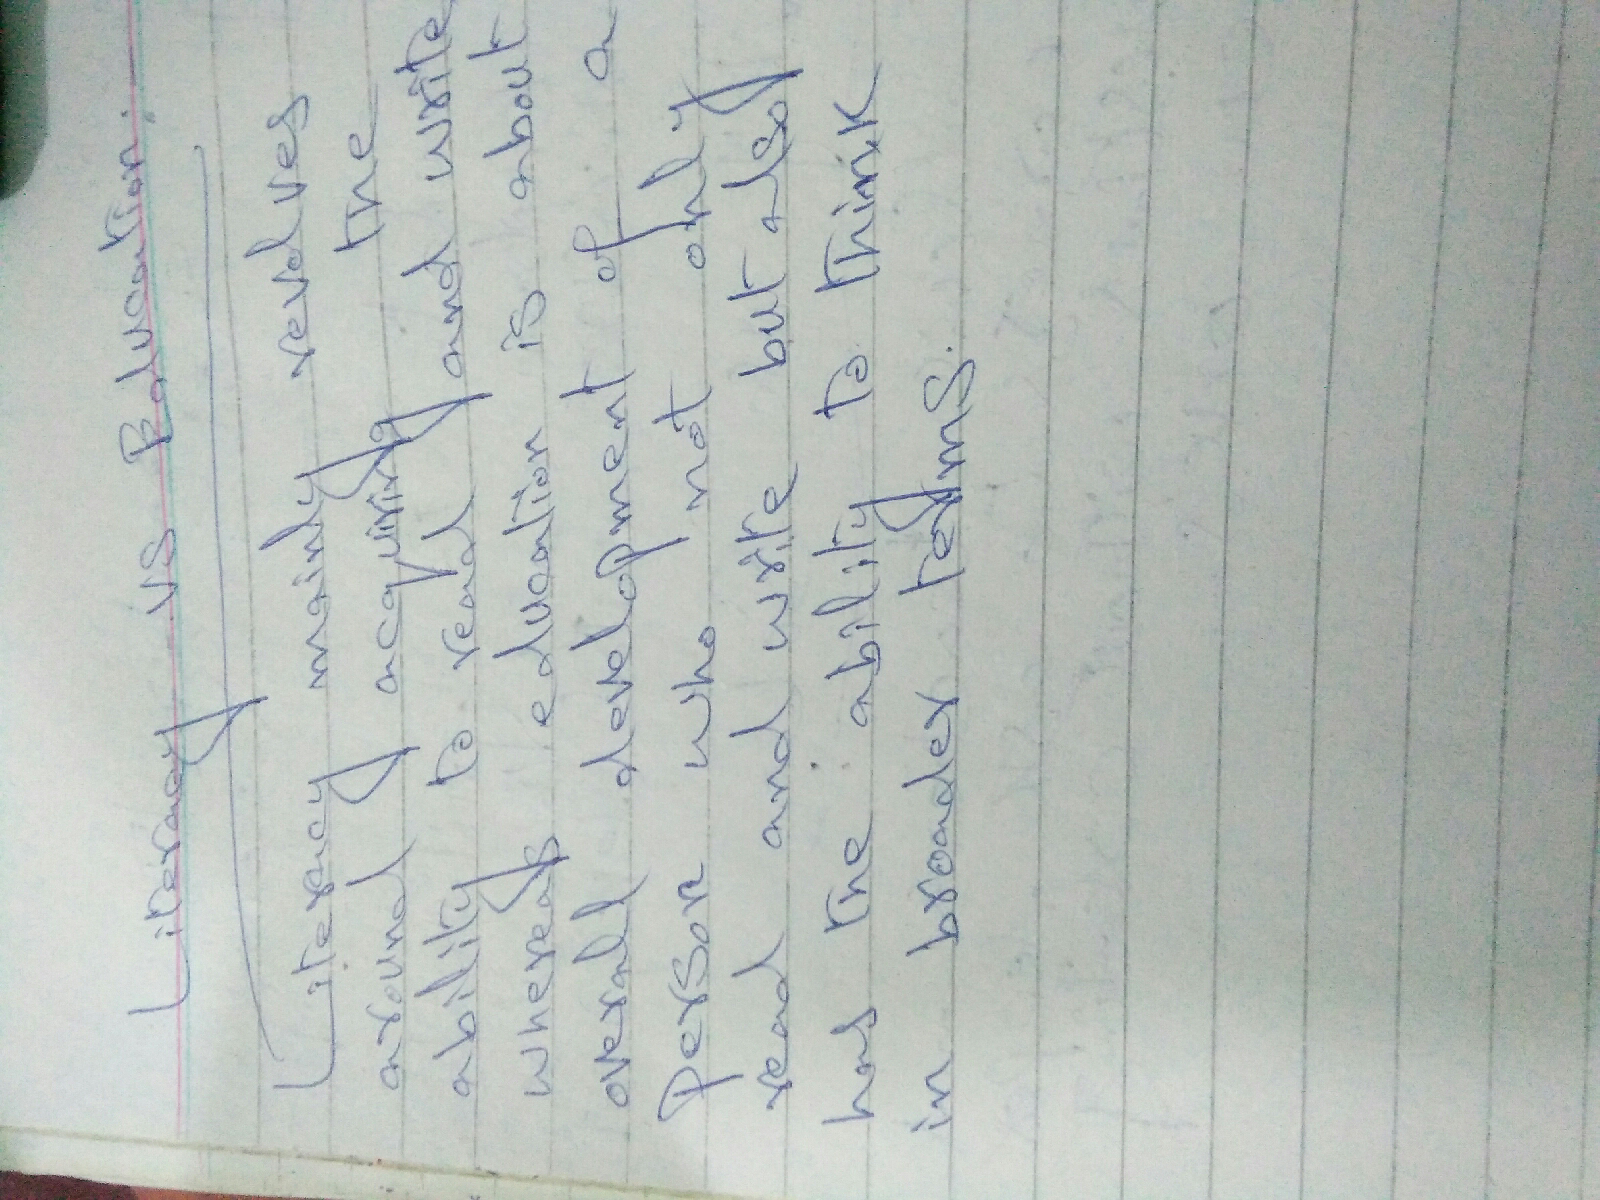 Literacy vs Education:
Literacy mainly revolves
around acquiring the
ability to read and write
whereas education is about
overall development of a
person who not only
read and write but also
has the ability to think
in broader terms.